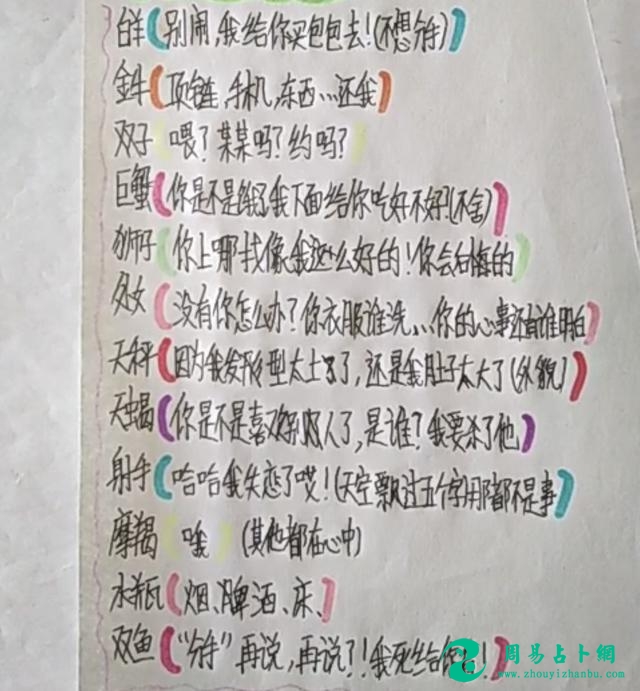 白羊(别闹,我给你买包包去!(不想分手)
金牛(项链,手机,东西...还我)
双子 喂?某某吗?约吗?
巨蟹(你是不是饿了我下面给你吃好不好(不舍)
狮子(你上哪找像我这么好的!你会后悔的
处女(没有你怎么办?你衣服谁洗...你的心事还有谁明白
天秤(因为我发形型太土了,还是我肚子太大了(外貌)
天蝎(你是不是喜欢别人了,是谁?我要杀了他
射手(哈哈我失恋了哎!(天空飘过五个字那都不是事
摩羯 哦 (其他都在心中)
水瓶(烟、脾酒、床、
双鱼("分手"再说,再说?!我死给你!
周易占卜网
www.zhouyizhanbu.com